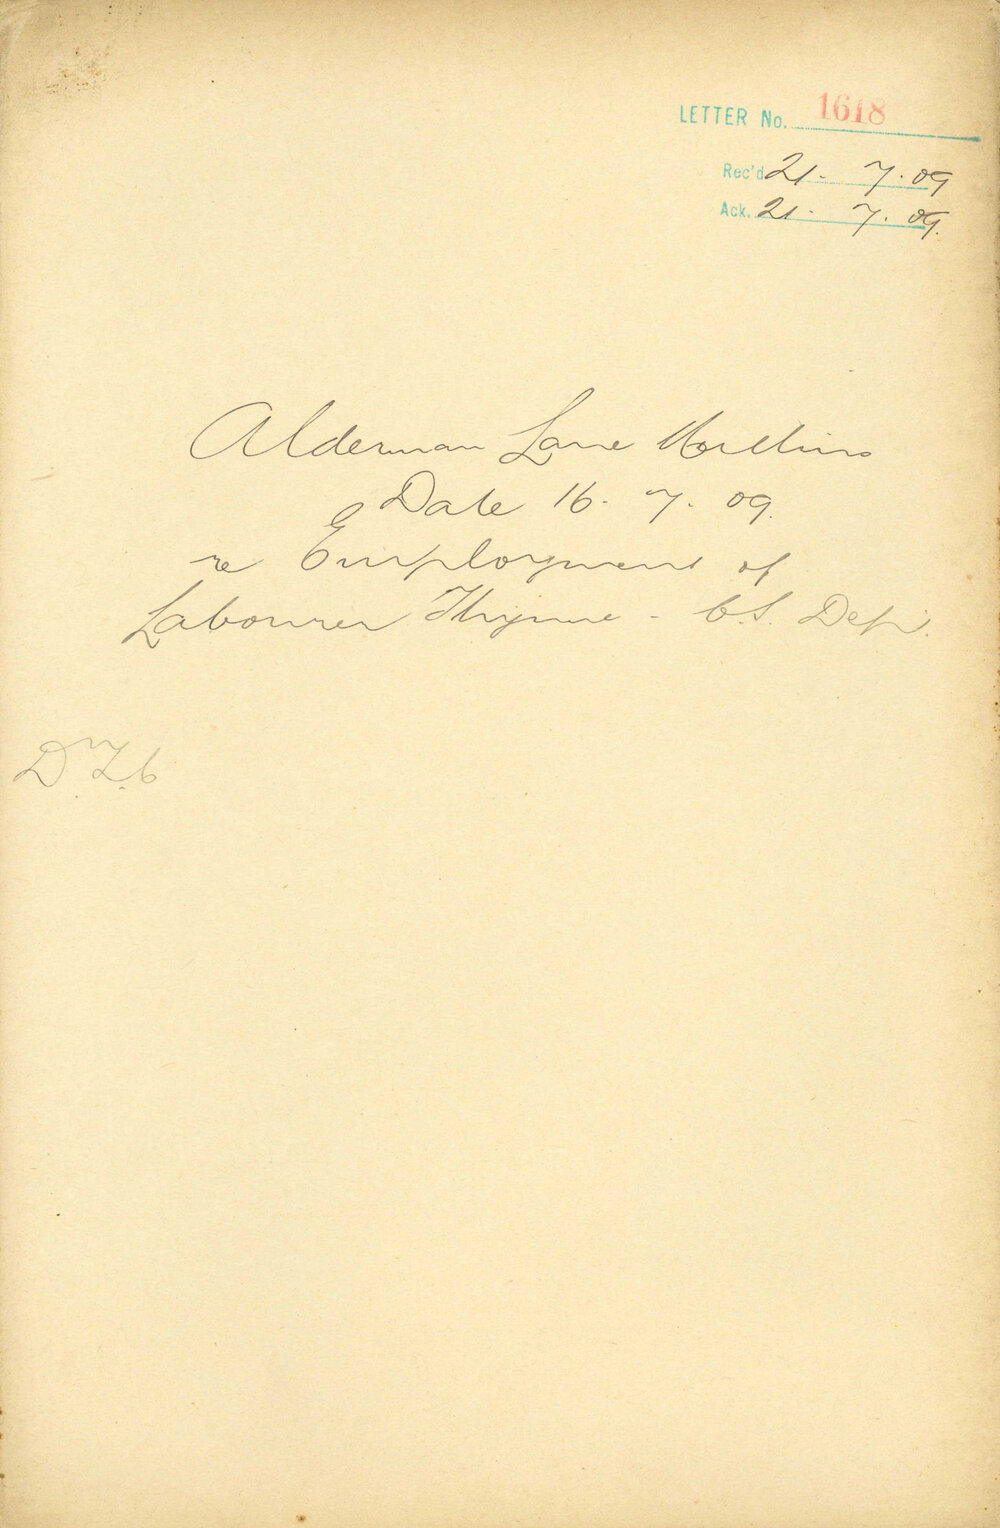 LETTER No. 1618
Rec'd 21. 7. 09
Ack. 21. 7. 09.
Alderman Lane Mullins
Date 16. 7. 09.
re Employment of
Labourer Thynne - C.S. Dept.